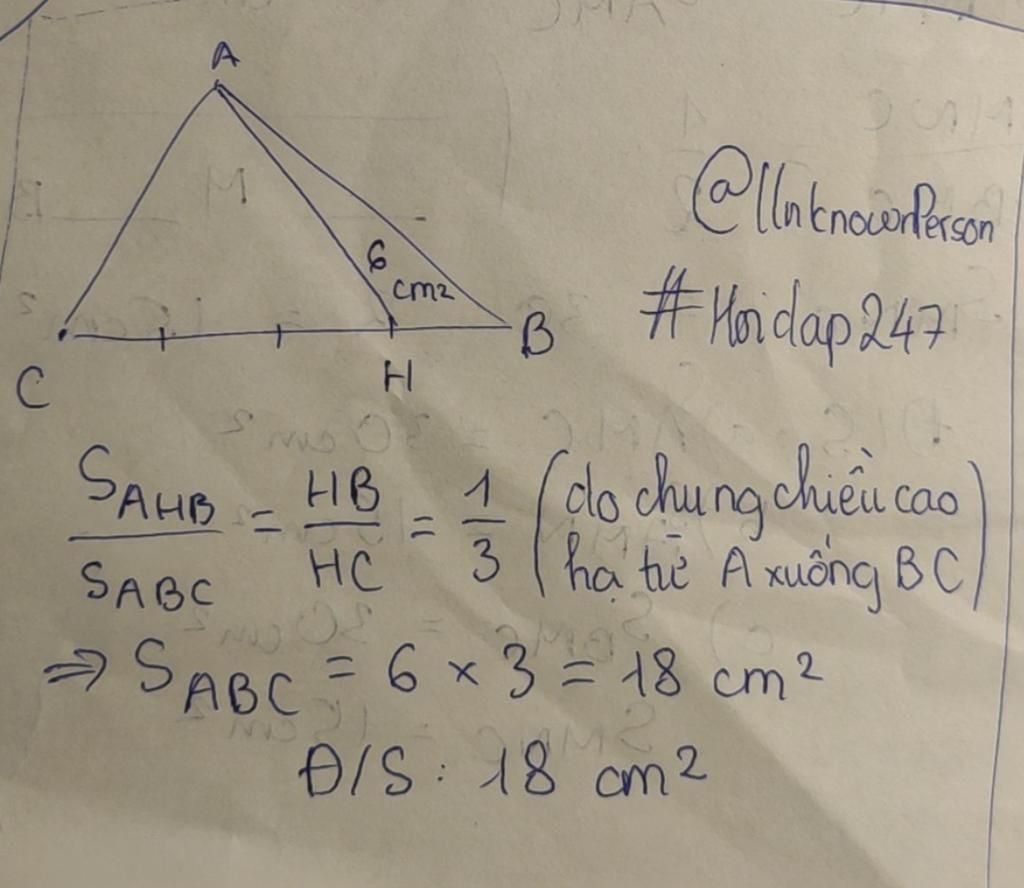 A
@UnknownPerson
6
cm2
#Hoidap247
C
H
B
S AHB / S ABC = HB / HC = 1 / 3 (do chung chiều cao
hạ từ A xuống BC)
⇒ S ABC = 6 × 3 = 18 cm²
Đ/S: 18 cm²